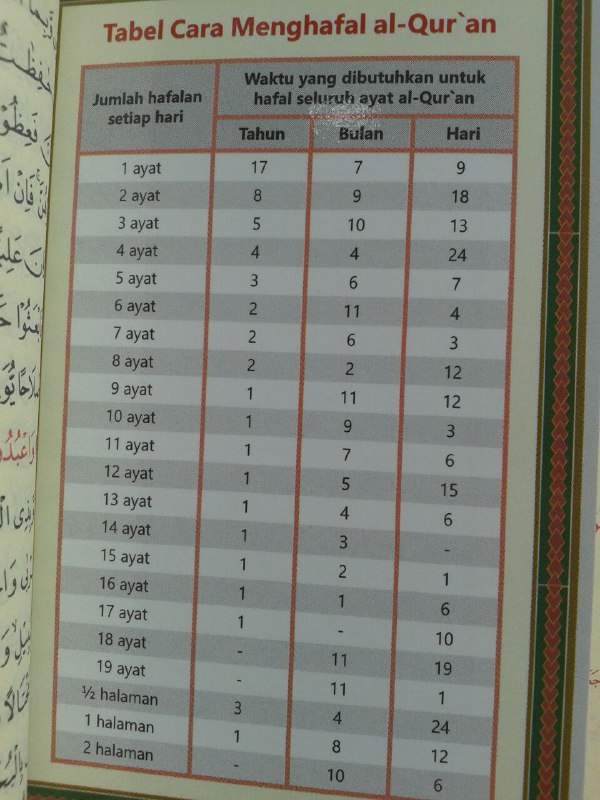 Tabel Cara Menghafal al-Qur`an
Jumlah hafalan setiap hari
Waktu yang dibutuhkan untuk
hafal seluruh ayat al-Qur`an
Tahun Bulan Hari
1 ayat 17 7 9
2 ayat 8 9 18
3 ayat 5 10 13
4 ayat 4 4 24
5 ayat 3 6 7
6 ayat 2 11 4
7 ayat 2 6 3
8 ayat 2 2 12
9 ayat 1 11 12
10 ayat 1 9 3
11 ayat 1 7 6
12 ayat 1 5 15
13 ayat 1 4 6
14 ayat 1 3 -
15 ayat 1 2 1
16 ayat 1 1 6
17 ayat 1 - 10
18 ayat - 11 19
19 ayat - 11 1
½ halaman 3 4 24
1 halaman 1 8 12
2 halaman - 10 6